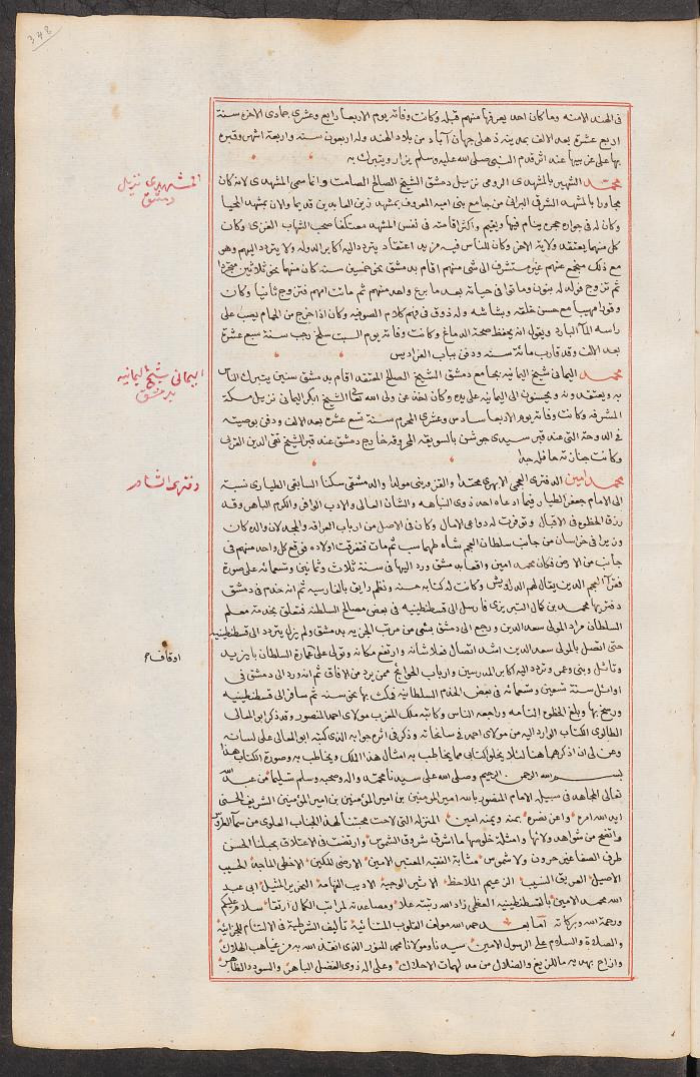 348
في الهند الامنه وما كان احد يعرفها منهم قبله وكانت وفاته يوم الاربعا رابع وعشري جمادى الاخره سنة
اربع عشرة بعد الالف بمدينة ذهلي جهان آباد من بلاد الهند وله اربعون سنة واربعة اشهر وقبره
بها على غربيها عند اثر قدم النبي صلى الله عليه وسلم يزار ويتبرك به
محمد الشهير بالمشهدي الرومي نزيل دمشق الشيخ الصالح الصامت وانما سمي المشهدي لانه كان
مجاورا بالمشهد الشرقي البراني من جامع بني اميه المعروف بمشهد زين العابدين قديما والان بمشهد المحيا
وكان له في جواره حجرة ينام فيها ويقيم واكثر اقامته في نفس المشهد معتكفا صحب الشهاب الغزي وكان
كل منهما يعتقد ولاية الاخر وكان للناس فيه مزيد اعتقاد يتردد اليه اكابر الدوله ولا يتردد اليهم وهو
مع ذلك منجمع عنهم غير مستشرف الى شي منهم اقام بدمشق نحو خمسين سنه كان منها نحو ثلاثين متجردا
ثم تزوج فولد له بنون وماتوا في حياته بعد ما برع واحد منهم ثم ماتت امهم فتزوج ثانيا وكان
وقورا مهيبا مع حسن خلقه وبشاشه وله ذوق في فهم كلام الصوفيه وكان اذا خرج من الحمام يصب على
راسه الماء البارد ويقول انه يحفظ صحة الدماغ وكانت وفاته يوم السبت سلخ رجب سنة سبع عشرة
بعد الالف وقد قارب مائة سنه ودفن بباب الفراديس
محمد اليماني شيخ اليمانيه بجامع دمشق الشيخ الصالح المعتقد اقام بدمشق سنين يتبرك الناس
به ويعتقدونه ويحسنون الى اليمانيه على يده وكان اخذ عن ولي الله الشيخ ابكر اليماني نزيل مكة
المشرفه وكانت وفاته يوم الاربعا سادس وعشري المحرم سنة تسع عشره بعد الالف ودفن بوصيته
في الدوحة التي عند قبر سيدي جوشن بالسويقه المحروقه خارج دمشق عند قبر الشيخ تقي الدين الغزي
وكانت جنازته حافله جدا
محمد امين الدفتري العجمي الابهري محتدا والقزويني مولدا والدمشقي سكنا السابقي الطياري نسبة
الى الامام جعفر الطيار فيما ادعاه احد ذوي النباهه والشان العالي والادب الوافي والكرم الباهر وقد
رزق الحظوه في الاقبال وتوفرت له دواعي الامال وكان في الاصل من ارباب العراقه والمجد لان والده كان
وزيرا في خراسان من جانب سلطان العجم شاه طهماسب ثم مات فتفرقت اولاده فوقع كل واحد منهم في
جانب من الارض فكان محمد امين واقعا بدمشق ورد اليها في سنة ثلاث وثمانين وتسعمائه على صورة
فقراء العجم الذين يقال لهم الدراويش وكانت له كتابه حسنه ونظم رايق بالفارسيه ثم انه خدم في دمشق
دفتريها محمد بن كمال التبريزي فارسل الى قسطنطينيه في بعض مصالح السلطنه فتعلق بخدمة معلم
السلطان مراد المولى سعد الدين ورجع الى دمشق بشي من مرتب الجزيه بدمشق ولم يزل يتردد الى قسطنطينيه
حتى اتصل بالمولى سعد الدين اشد اتصال فعلا شانه وارتفع مكانه وتولى على عمارة السلطان بايزيد
وتاثل وبنى وعمر وتردد اليه اكابر المدرسين وارباب الحوائج ممن يرد من الافاق ثم انه ورد الى دمشق في
اوائل سنة تسعين وتسعمائه في بعض الخدم السلطانيه فمكث بها نحو سنه ثم سافر الى قسطنطينيه
ورسخ بها وبلغ الحظوه التامه وراجعه الناس وكاتبه ملك المغرب مولاي احمد المنصور وقد ذكر ابو المعالي
الطالوي الكتاب الوارد اليه من مولاي احمد في سانحاته وذكر في اثره جوابه الذي كتبه ابو المعالي على لسانه
وعن لي ان اذكرهما هنا لئلا يخلو كتابي مما يخاطب به امثال هذا الملك ويخاطب به وصورة الكتاب هذا
بسم الله الرحمن الرحيم وصلى الله على سيدنا محمد واله وصحبه وسلم تسليما من عبد الله
تعالى المجاهد في سبيله الامام المنصور بالله امير المومنين بن امير المومنين بن امير المومنين الشريف الحسني
ايد الله امره واعز نصره بمنه ويمنه امين المنزلة التي لاحت بمحبتها لهذا الجناب العلوي من سما الطروس
واتضح من شواهد ولائها وامثلة خلوصها ما اشرق شروق الشموس وارتضت في الاعتلاق بحبلنا الحسن
طرق الصفا غير حرون ولا شموس مثابة الفقيه المعتبر الامين الارضي المكين الاحظى الماجد الحسيب
الاصيل العريق النسيب الزعيم الملاحظ الاثير الوجيه الاديب الفهامة النحرير المثيل ابي عبد
الله محمد الامين بالقسطنطينيه العظمى زاد الله رتبته علا ومصاعدته لمراتب الكمال ارتقا سلام عليكم
ورحمة الله وبركاته اما بعد حمد الله مولف القلوب المتنائية تاليف الشرطية في الالتئام للجزائية
والصلاة والسلام على الرسول الامين سيدنا ومولانا محمد النور الذي انقذ الله به من غياهب الهلاك
وازاح بهديه ما للزيغ والضلال من مدلهمات الاحلاك وعلى اله ذوي الفضل الباهر والسودد الظاهر
المشهدي نزيل
دمشق
اليماني شيخ اليمانيه
بدمشق
دفتري الشام
اوقاف